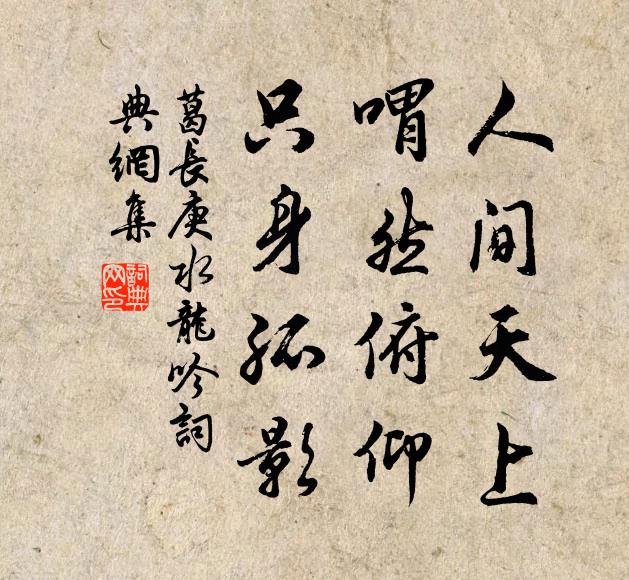 人間天上
喟然俯仰
只身孤影
葛長庚水龍吟詞
典網集
詞典網印